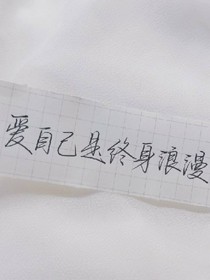 爱自己是终身浪漫